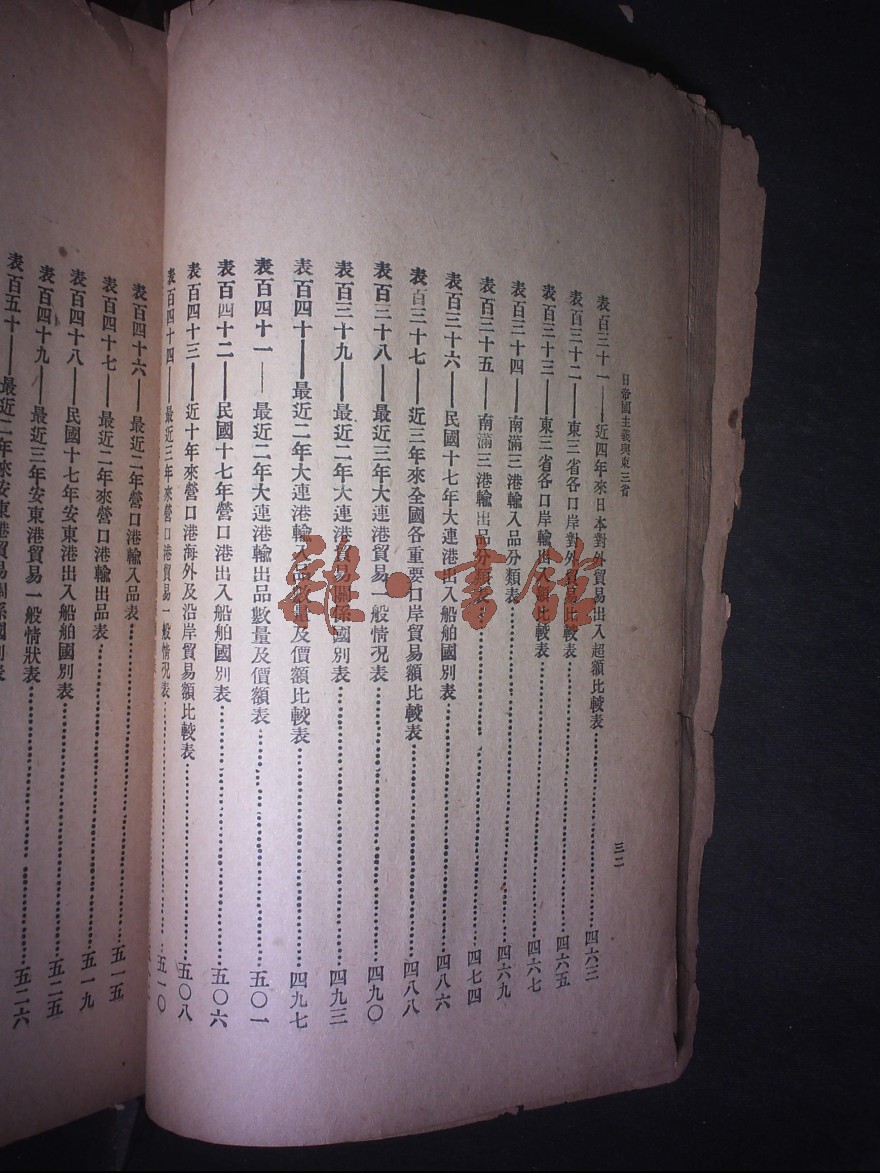 日帝國主義與東三省
三二
表百三十一——近四年來日本對外貿易出入超額比較表……四六三
表百三十二——東三省各口岸對外貿易比較表……四六五
表百三十三——東三省各口岸輸出入額比較表……四六七
表百三十四——南滿三港輸入品分類表……四六九
表百三十五——南滿三港輸出品分類表……四七四
表百三十六——民國十七年大連港出入船舶國別表……四八六
表百三十七——近三年來全國各重要口岸貿易額比較表……四八八
表百三十八——最近三年大連港貿易一般情況表……四九〇
表百三十九——最近二年大連港貿易關係國別表……四九三
表百四十——最近二年大連港輸入品數量及價額比較表……四九七
表百四十一——最近二年大連港輸出品數量及價額表……五〇一
表百四十二——民國十七年營口港出入船舶國別表……五〇六
表百四十三——近十年來營口港海外及沿岸貿易額比較表……五〇八
表百四十四——最近三年來營口港貿易一般情況表……五一〇
表百四十六——最近二年營口港輸入品表……五一五
表百四十七——最近二年來營口港輸出品表……五一九
表百四十八——民國十七年安東港出入船舶國別表……五二五
表百四十九——最近三年安東港貿易一般情狀表……五二六
表百五十——最近二年來安東港貿易關係國別表
雜·書館